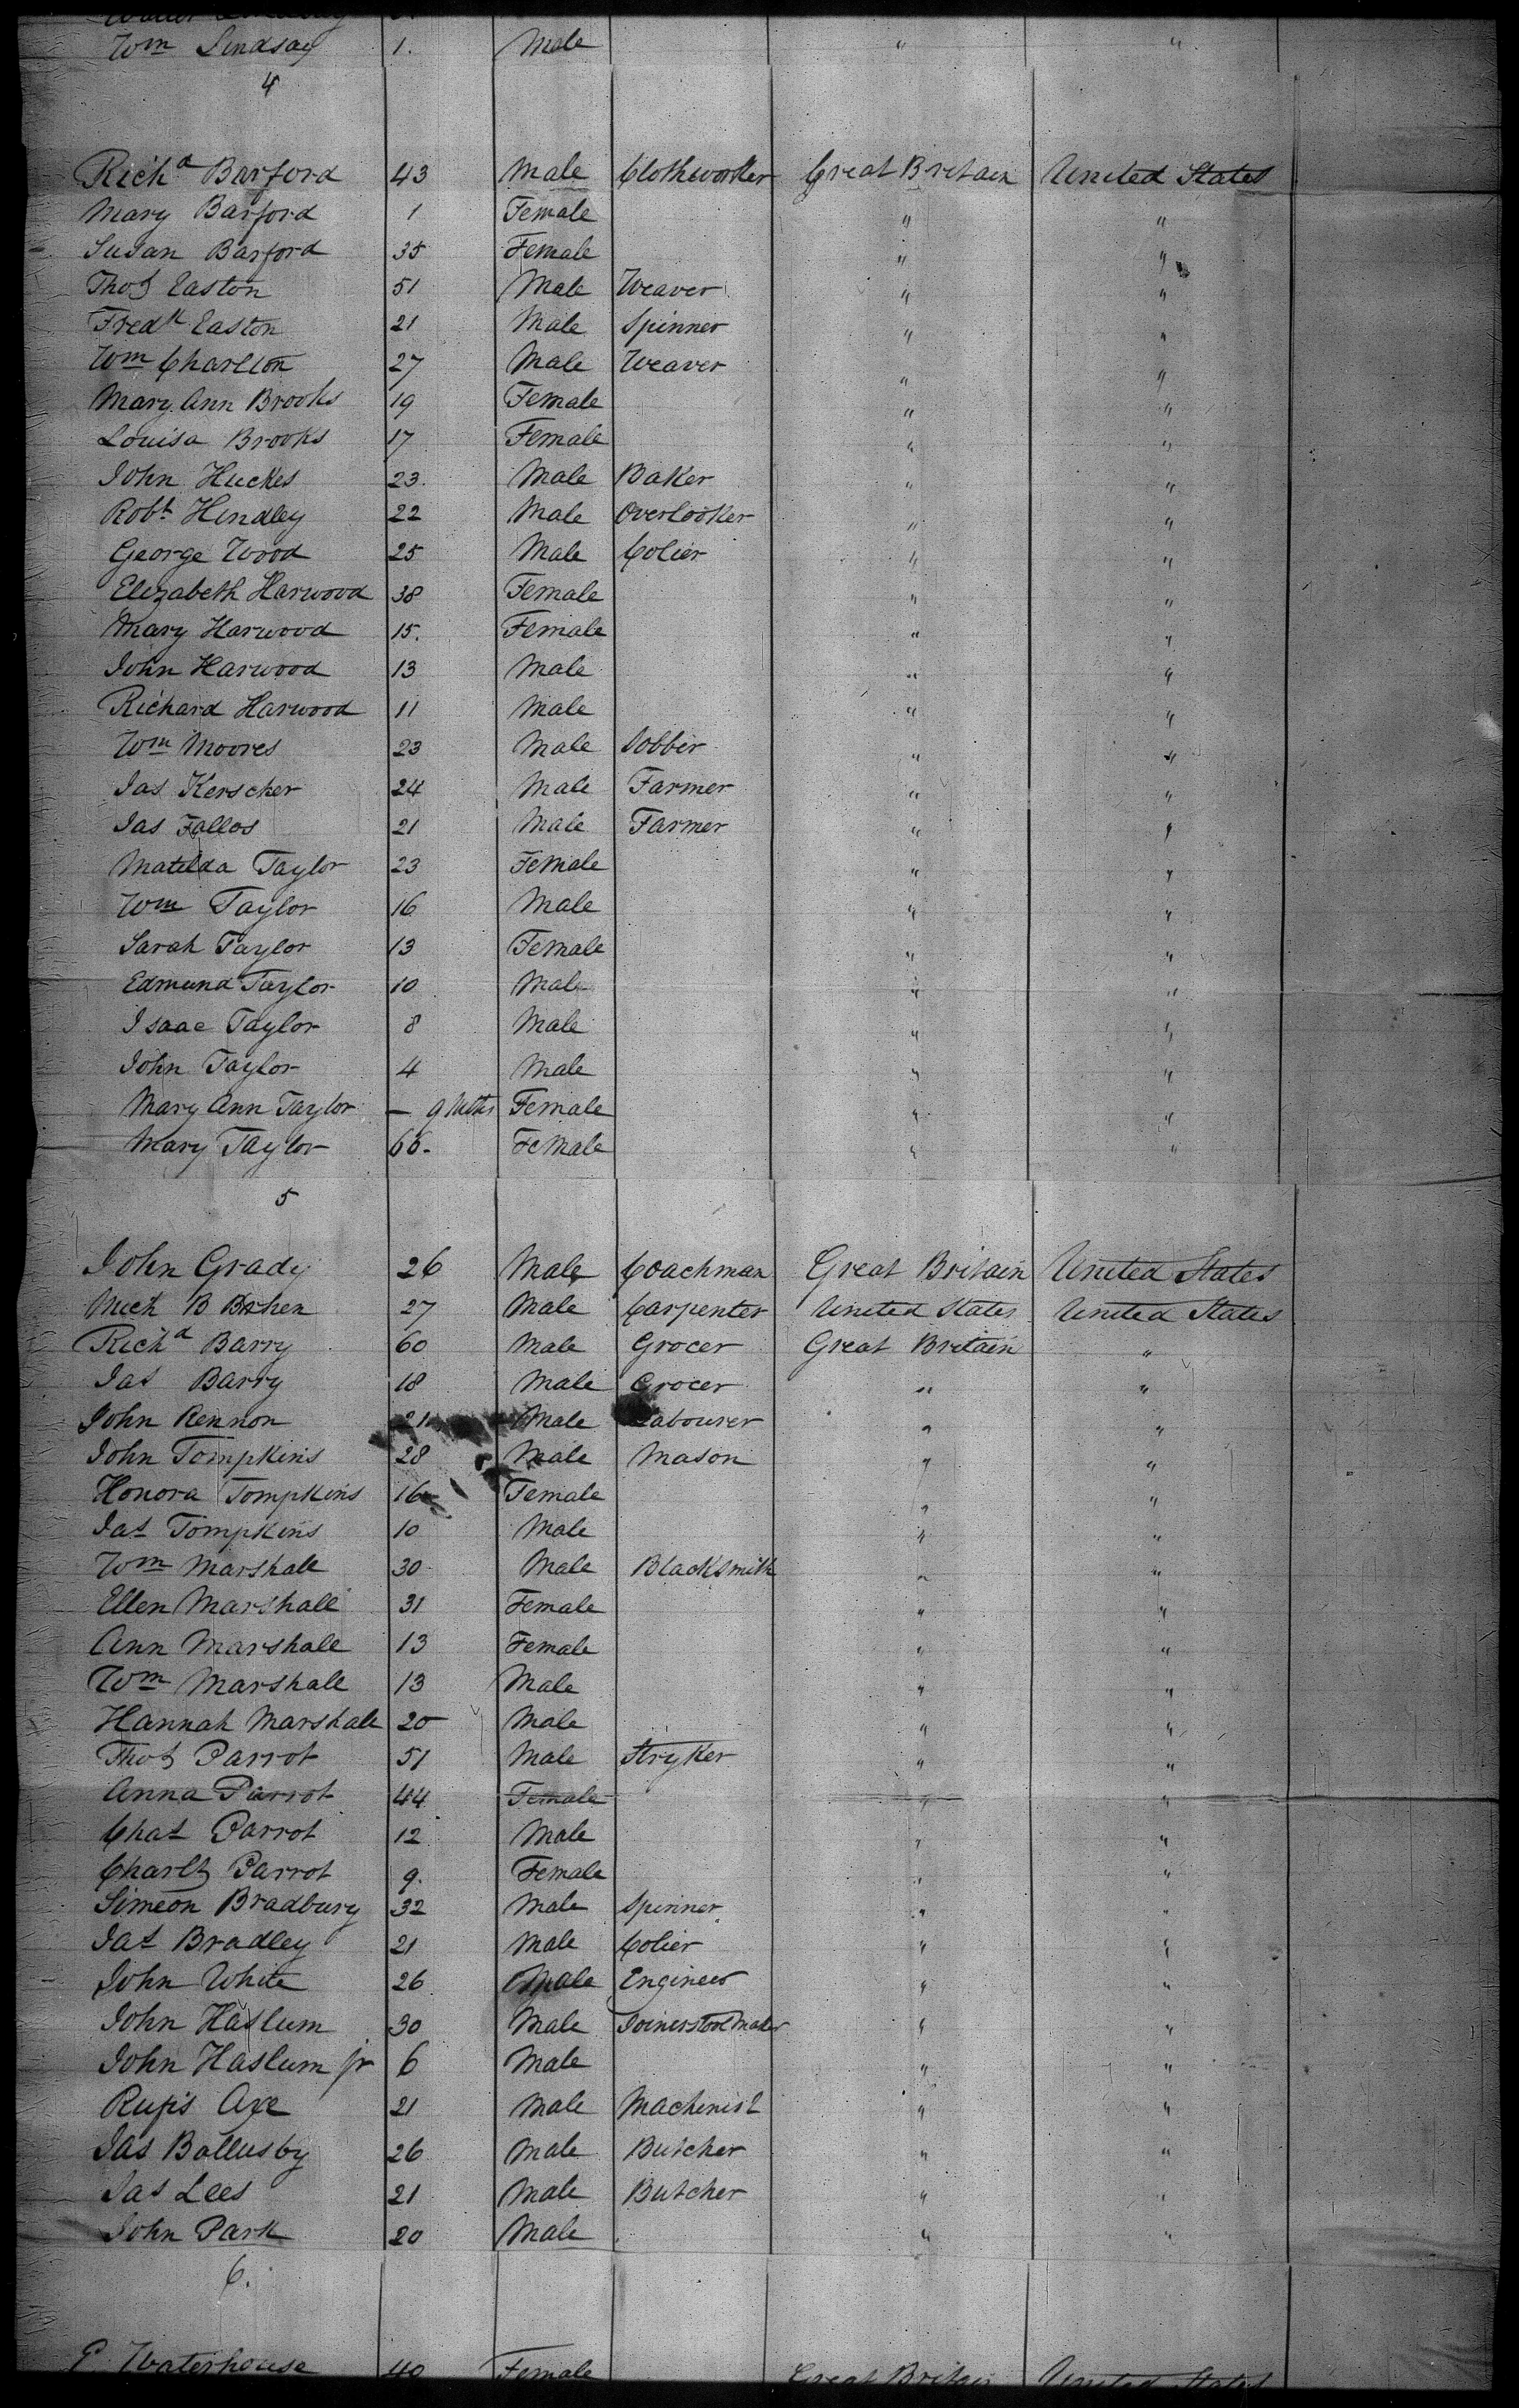 Wm Lindsay 1. Male " "
4
Richd Barford 43 Male Clothworker Great Britain United States
Mary Barford 1 Female " "
Susan Barford 35 Female " "
Thos Easton 51 Male Weaver " "
Fredk Easton 21 Male Spinner " "
Wm Charlton 27 Male Weaver " "
Mary Ann Brooks 19 Female " "
Louisa Brooks 17 Female " "
John Huckes 23. Male Baker " "
Robt Hindley 22 Male Overlooker " "
George Wood 25 Male Colier " "
Elizabeth Harwood 38 Female " "
Mary Harwood 15. Female " "
John Harwood 13 Male " "
Richard Harwood 11 Male " "
Wm Moores 23 Male Jobber " "
Jas Kerscher 24 Male Farmer " "
Jas Fallos 21 Male Farmer " "
Matilda Taylor 23 Female " "
Wm Taylor 16 Male " "
Sarah Taylor 13 Female " "
Edmund Taylor 10 Male " "
Isaac Taylor 8 Male " "
John Taylor 4 Male " "
Mary Ann Taylor — 9 Mths Female " "
Mary Taylor 66. Female " "
5
John Grady 26 Male Coachman Great Britain United States
B 27 Male Carpenter United States United States
Richd Barry 60 Male Grocer Great Britain "
Jas Barry 18 Male Grocer " "
John Rennon 21 Male Labourer " "
John Tompkins 28 Male Mason " "
Honora Tompkins 16 Female " "
Jas Tompkins 10 Male " "
Wm Marshall 30 Male Blacksmith " "
Ellen Marshall 31 Female " "
Ann Marshall 13 Female " "
Wm Marshall 13 Male " "
Hannah Marshall 20 Male " "
Thos Parrot 51 Male Stryker " "
Anna Parrot 44 Female " "
Chas Parrot 12 Male " "
Charlt Parrot 9. Female " "
Simeon Bradbury 32 Male Spinner " "
Jas Bradley 21 Male Colier " "
John White 26 Male Engineer " "
John Haslum 30 Male Joinerstoolmaker " "
John Haslum jr 6 Male " "
Axe 21 Male Machinist " "
Jas Bollusby 26 Male Butcher " "
Jas Lees 21 Male Butcher " "
John Park 20 Male " "
6.
Waterhouse 40 Female Great Britain United States